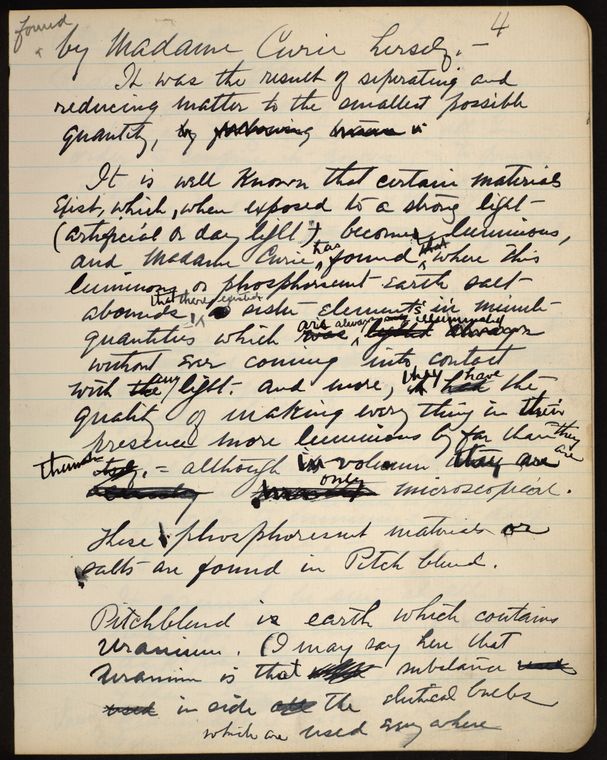 found
4
by Madame Curie herself. -
It was the result of seperating and
reducing matter to the smallest possible
quantity, by
It is well Known that certain materials
Exist, which, when exposed to a strong light -
(artificial or day light) become luminous,
and Madame Curie, has found that where this
luminous or phosphorescent earth salt
abounds that there existed sister elements in minute
quantities which are always illuminated
without ever coming into contact
with any light. and more, they have the
quality of making every thing in their
presence more luminous by far than they
themselves. - although in volume they are are
only microscopical.
These phosphorescent materials or
salts are found in Pitch blend.
Pitchblend is earth which contains
Uranium. (I may say here that
Uranium is that substance used
used in side the electrical bulbs
which are used everywhere